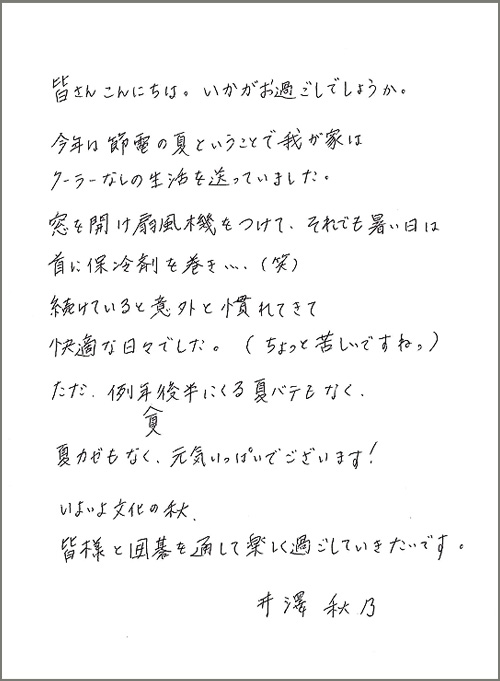 皆さんこんにちは。いかがお過ごしでしょうか。
今年は節電の夏ということで我が家は
クーラーなしの生活を送っていました。
窓を開け扇風機をつけて、それでも暑い日は
首に保冷剤を巻き…、(笑)
続けていると意外と慣れてきて
快適な日々でした。(ちょっと苦しいですねっ)
ただ、例年後半にくる夏バテもなく、
夏
夏カゼもなく、元気いっぱいでございます!
いよいよ文化の秋、
皆様と囲碁を通して楽しく過ごしていきたいです。
井澤 秋乃